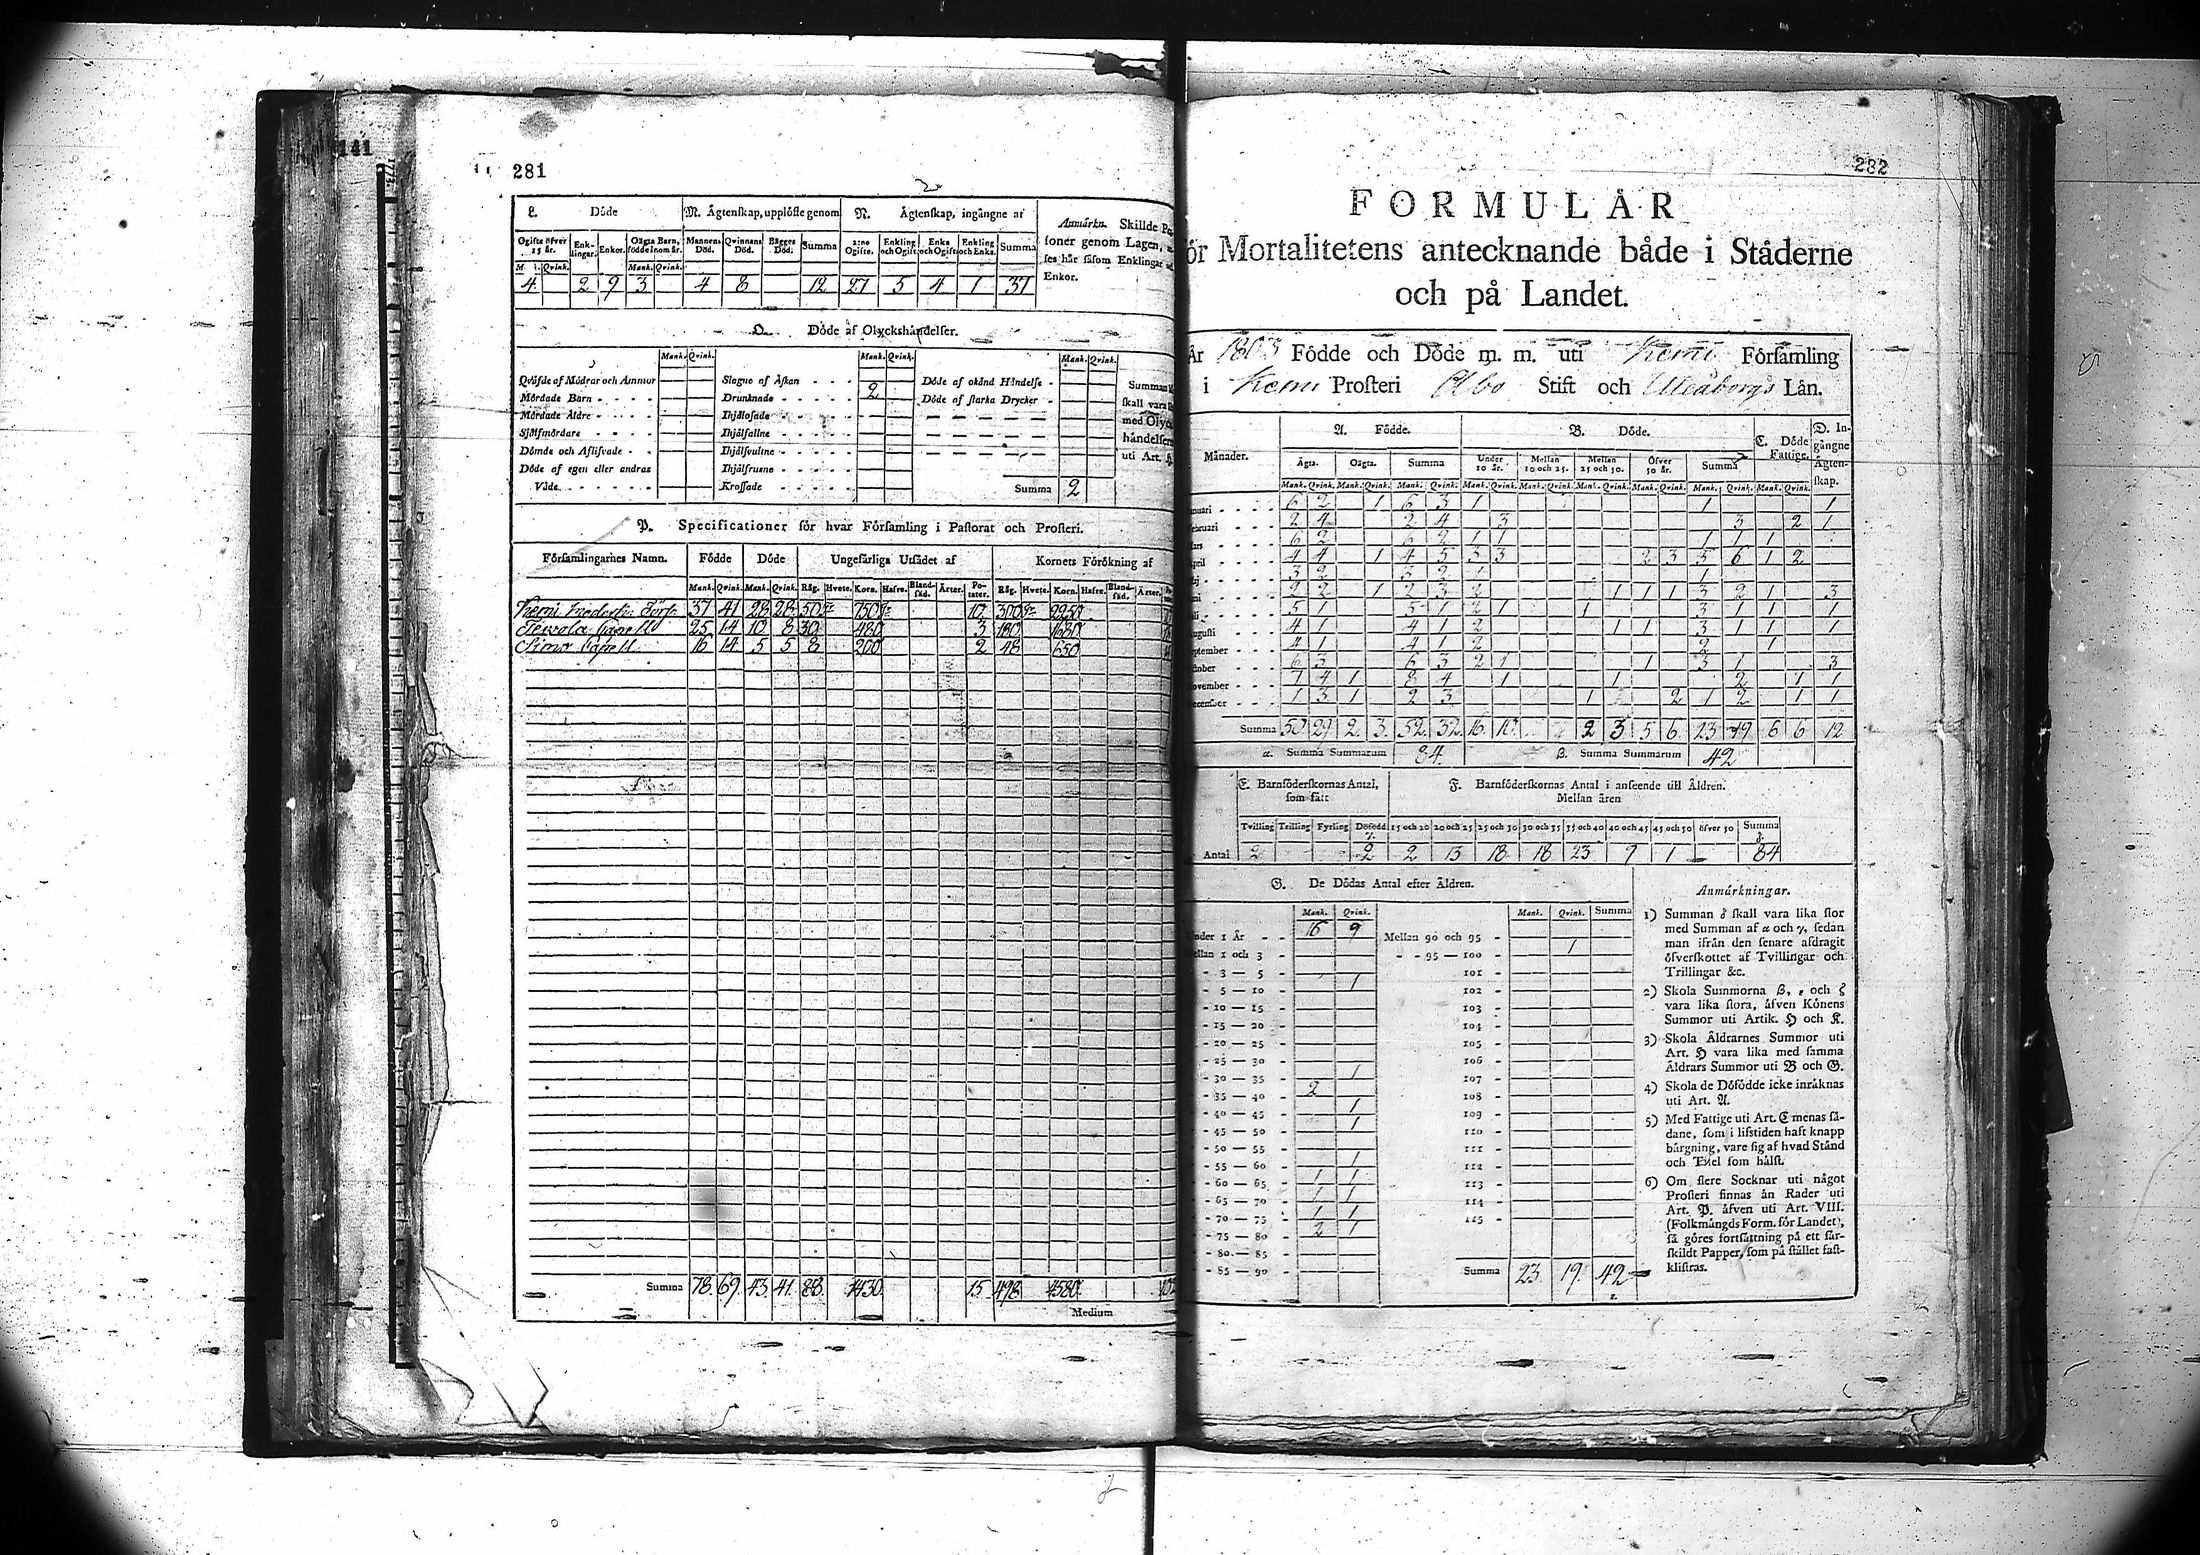 141
281
L. Döde
M. Ägtenskap, upplöste genom
N. Ägtenskap, ingångne af
Anmärkn. Skillde Per
soner genom Lagen,
ses här såsom Enklingar
Enkor.
Ogifte öfver 15 år. Enklingar. Enkor. Oägta Barn, födde inom år. Mannens Död. Qvinnans Död. Bägges Död. Summa 2:ne Ogifte. Enkling och Ogift. Enka och Ogift. Enkling och Enka. Summa
Qvink. Mank. Qvink.
4 2 9 3 4 8 12 27 5 4 1 37
O. Döde af Olyckshändelser.
Mank. Qvink. Mank. Qvink. Mank. Qvink.
Qväfde af Mödrar och Ammor Slagne af Åskan Döde af okänd Händelse
Mördade Barn Drunknade 2 Döde af starka Drycker
Mördade Äldre Ihjälfrosade
Själfmördare Ihjälfallne
Dömde och Aflifvade
Döde af egen eller andras Ihjälfrusne
Våde Krossade Summa 2
Summan
skall vara
med Olyc
händelsern
uti Art. H.
P. Specificationer för hvar Församling i Pastorat och Prosteri.
Församlingarnes Namn. Födde Döde Ungefärliga Utsädet af Kornets Förökning af
Mank. Qvink. Mank. Qvink. Råg. Hvete. Korn. Hafre. Blandsäd. Ärter. Potater. Råg. Hvete. Korn. Hafre. Blandsäd. Ärter.
Kemi 37 41 28 28 50 750 10 300 2250
Tervola Capell 25 14 10 8 30 480 3 180 1680
Simo Capell 16 14 5 5 8 200 2 48 650
Summa 78 69 43 41 88 1430 15 498 4580
Medium
282
FORMULÄR
ör Mortalitetens antecknande både i Städerne
och på Landet.
År 1803 Födde och Döde m. m. uti Kemi Församling
i Kemi Prosteri Åbo Stift och Uleåborgs Län.
Månader. A. Födde. B. Döde. C. Döde Fattige. D. Ingångne Ägtenskap.
Ägta. Oägta. Summa Under 10 år. Mellan 10 och 25. Mellan 25 och 50. Öfver 50 år. Summa
Mank. Qvink. Mank. Qvink. Mank. Qvink. Mank. Qvink. Mank. Qvink. Mank. Qvink. Mank. Qvink. Mank. Qvink. Mank. Qvink.
anuari 6 2 1 6 3 1 1 1
ebruari 2 4 2 4 3 3 2 1
ars 6 2 6 2 1 1 1 1 1
pril 4 4 1 4 5 3 3 2 3 5 6 1 2
aj 3 2 3 2 1 1
ni 2 2 1 2 3 2 1 1 1 3 2 1 3
uli 5 1 5 1 2 1 1 3 1 1 1
ugusti 4 1 4 1 2 1 1 3 1 1 1
eptember 4 1 4 1 2 2 1
ktober 6 3 6 3 2 1 1 3 1 3
ovember 7 4 1 8 4 1 1 2 1 1
ecember 1 3 1 2 3 1 2 1 2 1 1
Summa 50 29 2 3 52 32 16 10 2 3 5 6 23 19 6 6 12
α. Summa Summarum 84 β. Summa Summarum 42
E. Barnföderskornas Antal,
som fått
F. Barnföderskornas Antal i anseende till Åldren.
Mellan åren
Tvilling Trilling Fyrling Dödfödd 15 och 20 20 och 25 25 och 30 30 och 35 35 och 40 40 och 45 45 och 50 öfver 50 Summa
Antal 2 2 2 13 18 18 23 9 1 84
G. De Dödas Antal efter Åldren.
Mank. Qvink. Mank. Qvink. Summa
nder 1 År 16 9 Mellan 90 och 95
ellan 1 och 3 95 — 100 1
3 — 5 101
5 — 10 1 102
10 — 15 103
15 — 20 104
20 — 25 105
25 — 30 106
30 — 35 2 1 107
35 — 40 108
40 — 45 1 109
45 — 50 1 110
50 — 55 111
55 — 60 1 112
60 — 65 1 1 113
65 — 70 1 1 114
70 — 75 1 1 115
75 — 80 2 1
80 — 85
85 — 90 Summa 23 19 42
Anmärkningar.
1) Summan δ skall vara lika stor
med Summan af α och γ, sedan
man ifrån den senare afdragit
öfverskottet af Tvillingar och
Trillingar &c.
2) Skola Summorna β, ε och ζ
vara lika stora, äfven Könens
Summor uti Artik. H och K.
3) Skola Åldrarnes Summor uti
Art. H vara lika med samma
Åldrars Summor uti B och G.
4) Skola de Döfödde icke inräknas
uti Art. A.
5) Med Fattige uti Art. C menas så-
dane, som i lifstiden haft knapp
bärgning, vare sig af hvad Stånd
och Titel som hälst.
6) Om flere Socknar uti något
Prosteri finnas än Rader uti
Art. P. äfven uti Art. VIII.
(Folkmängds Form. för Landet),
så göres fortsättning på ett sär-
skildt Papper, som på stället fast-
klistras.